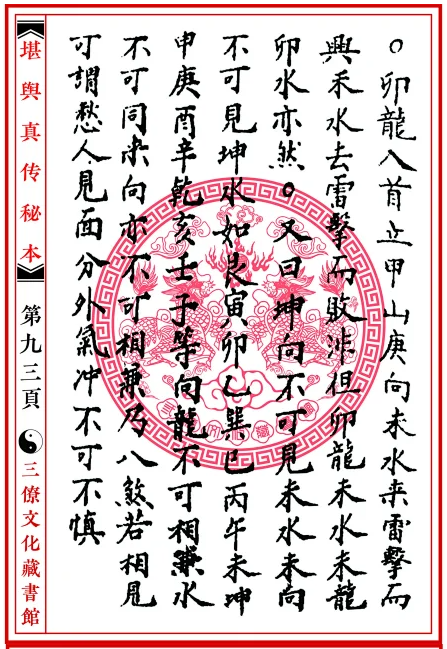 ○卯龍入首立甲山庚向未水来雷擊而
興禾水去雷擊而敗非但卯龍未水未龍
卯水亦然○又曰坤向不可見未水未向
不可見坤水如艮寅卯乙巽巳丙午未坤
申庚酉辛乾亥壬子等向龍不可相兼水
不可同来向亦不可相兼乃八煞若相見
可謂愁人見面分外氣冲不可不慎
堪輿真传秘本
第九三頁
三僚文化藏書館